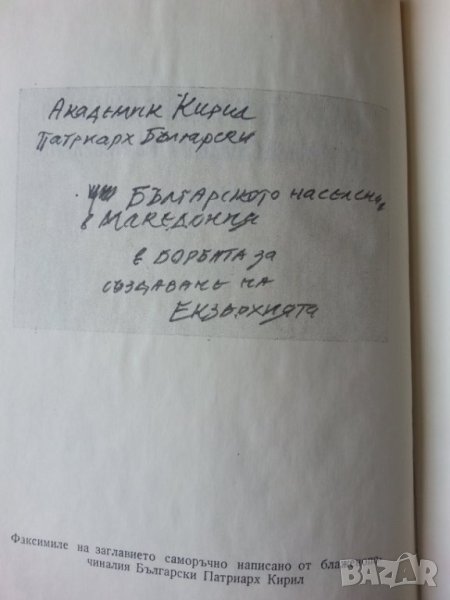 Академик Кирил
Патриарх Български
Българското население
в Македония
в борбата за
създаване на
Екзархията
Факсимиле на заглавието саморъчно написано от блаженопо-
чиналия Български Патриарх Кирил
BAZAR